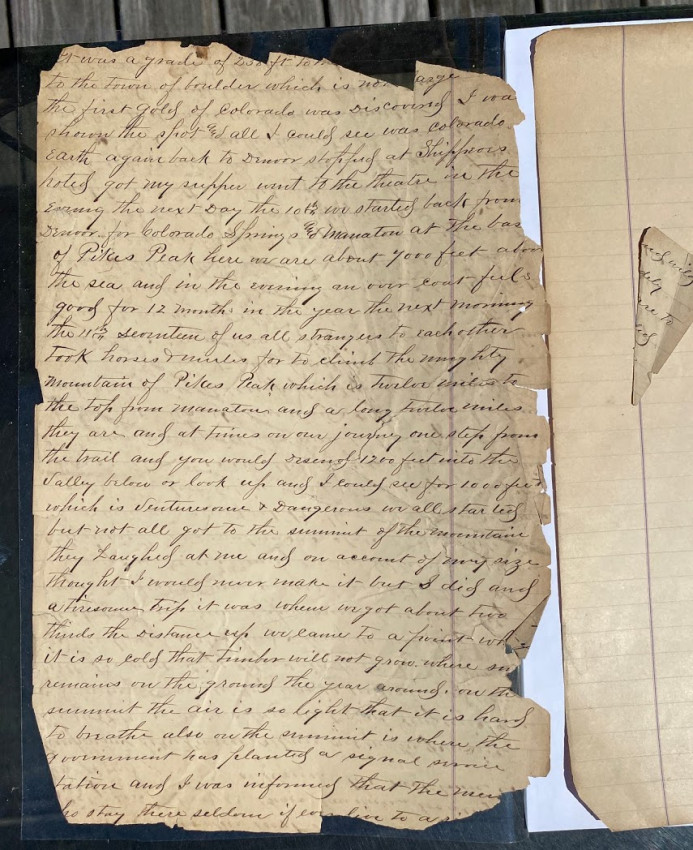 it was a grade of 250 ft to
to the town of boulder which is now
the first gold of Colorado was Discovered I wa
shown the spot & all I could see was colorado
Earth again back to Denvor stopped at
hotel got my supper went to the theatre in the
Evning the next Day the 10th we started back from
Denvor for Colorado Springs & Manatou at the bas
of Pikes Peak here we are about 7000 feet abov
the sea and in the evening an over coat feels
good for 12 months in the year the next morning
the 11th seventeen of us all strangers to each other
took horses & mules for to climb the mighty
mountain of Pikes Peak which is twelve miles to
the top from manatou and a long twelve miles
they are and at times on our journy one step from
the trail and you would Desend 1200 feet into the
Valley below or look up and I could see for 1000 feet
which is Venturesome & Dangerous we all started
but not all got to the summit of the mountain
they Laughed at me and on account of my size
thought I would never make it but I did and
a tiresome trip it was when we got about two
thirds the Distance up we came to a point wh
it is so cold that timber will not grow where sn
remains on the ground the year around. on the
summit the air is so light that it is hard
to breathe also on the summit is where the
government has planted a signal service
tation and I was informed that the men
ho stay there seldom if ever live to a